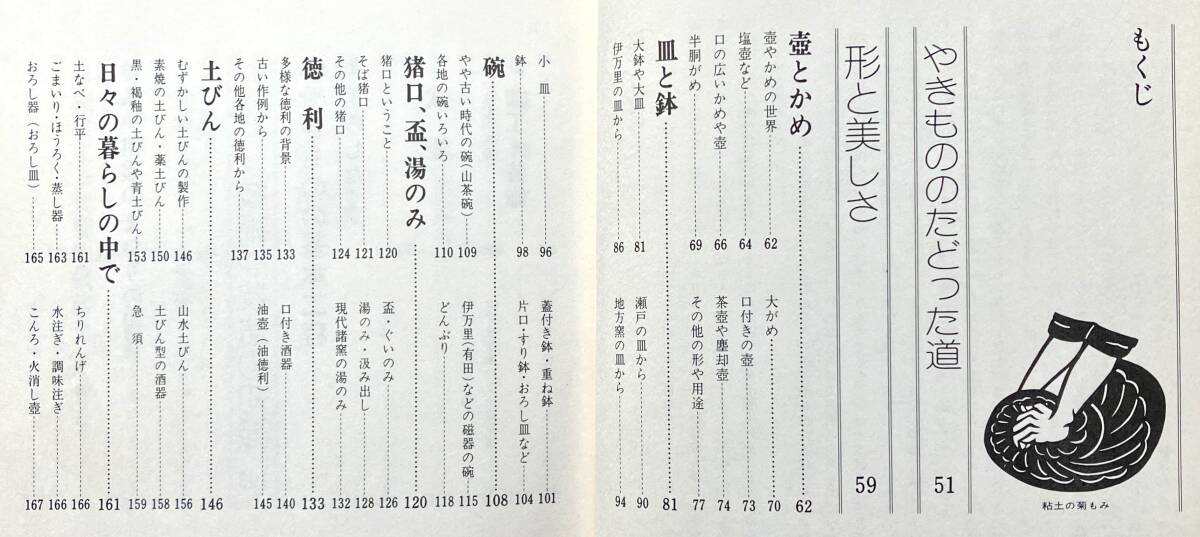 もくじ
やきもののたどった道 51
形と美しさ 59
壺とかめ 62
壺やかめの世界 62
大がめ 70
塩壺など 64
口付きの壺 73
口の広いかめや壺 66
茶壺や塵却壺 74
半胴がめ 69
その他の形や用途 77
皿と鉢 81
大鉢や大皿 81
瀬戸の皿から 90
伊万里の皿から 86
地方窯の皿から 94
粘土の菊もみ
小皿 96
蓋付き鉢・重ね鉢 101
鉢 98
片口・すり鉢・おろし皿など 104
碗 108
やや古い時代の碗(山茶碗) 109
伊万里(有田)などの磁器の碗 115
各地の碗いろいろ 110
どんぶり 118
猪口、盃、湯のみ 120
猪口ということ 120
盃・ぐいのみ 126
そば猪口 121
湯のみ・汲み出し 128
その他の猪口 124
現代諸窯の湯のみ 132
徳利 133
多様な徳利の背景 133
口付き酒器 140
古い作例から 135
油壺(油徳利) 145
その他各地の徳利から 137
土びん 146
むずかしい土びんの製作 146
山水土びん 156
素焼の土びん・薬土びん 150
土びん型の酒器 158
黒・褐釉の土びんや青土びん 153
急須 159
日々の暮らしの中で 161
土なべ・行平 161
ちりれんげ 166
ごまいり・ほうろく・蒸し器 163
水注ぎ・調味注ぎ 166
おろし器(おろし皿) 165
こんろ・火消し壺 167